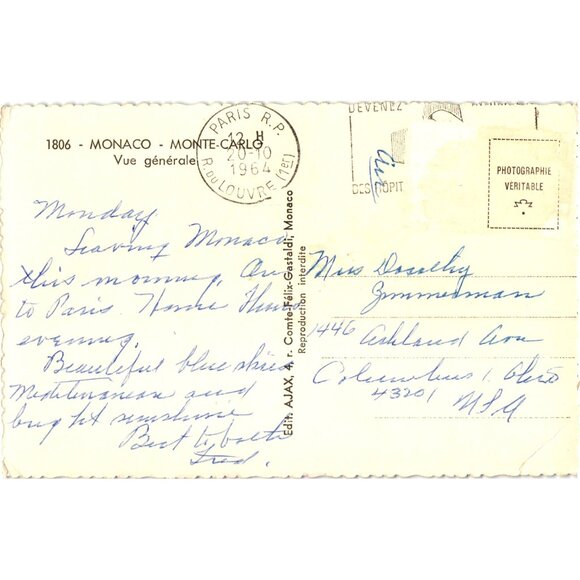 1806 - MONACO - MONTE-CARLO
Vue générale
PARIS R.P.
12 H
20-10
1964
R. DU LOUVRE (1er)
DEVENEZ
DES HOPIT
Air
PHOTOGRAPHIE
VERITABLE
Monday,
Leaving Monaco
this morning, On
to Paris. Home Thurs
evening.
Beautiful blue skies
Mediterranean and
bright sunshine
Best to both
Fred.
Edit. AJAX, 4, r. Comte-Félix-Gastaldi, Monaco
Reproduction interdite
Miss Dorothy
Zimmerman
1446 Ashland Ave
Columbus 1, Ohio
43201
USA